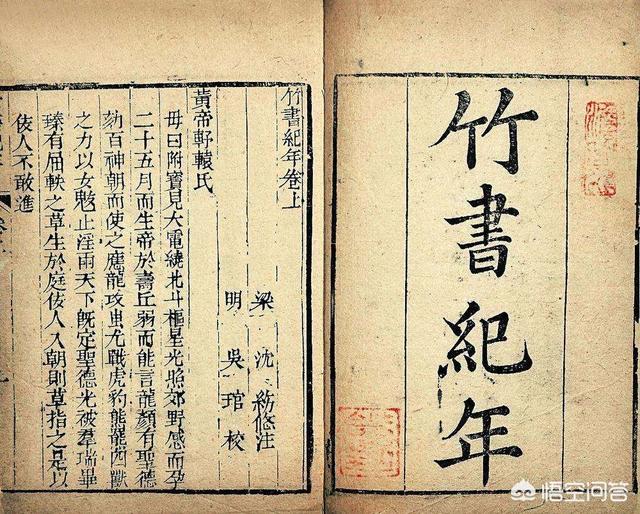 竹書紀年
竹書紀年卷上
梁 沈 約 注
明 吳 琯 校
黃帝軒轅氏
母曰附寶見大電繞北斗樞星光照郊野感而孕
二十五月而生帝於壽丘弱而能言龍顏有聖德
劾百神朝而使之應龍攻蚩尤戰虎豹熊羆四獸
之力以女魃止淫雨天下旣定聖德光被羣瑞畢
臻有屈軼之草生於庭佞人入朝則草指之是以
佞人不敢進
悟空问答